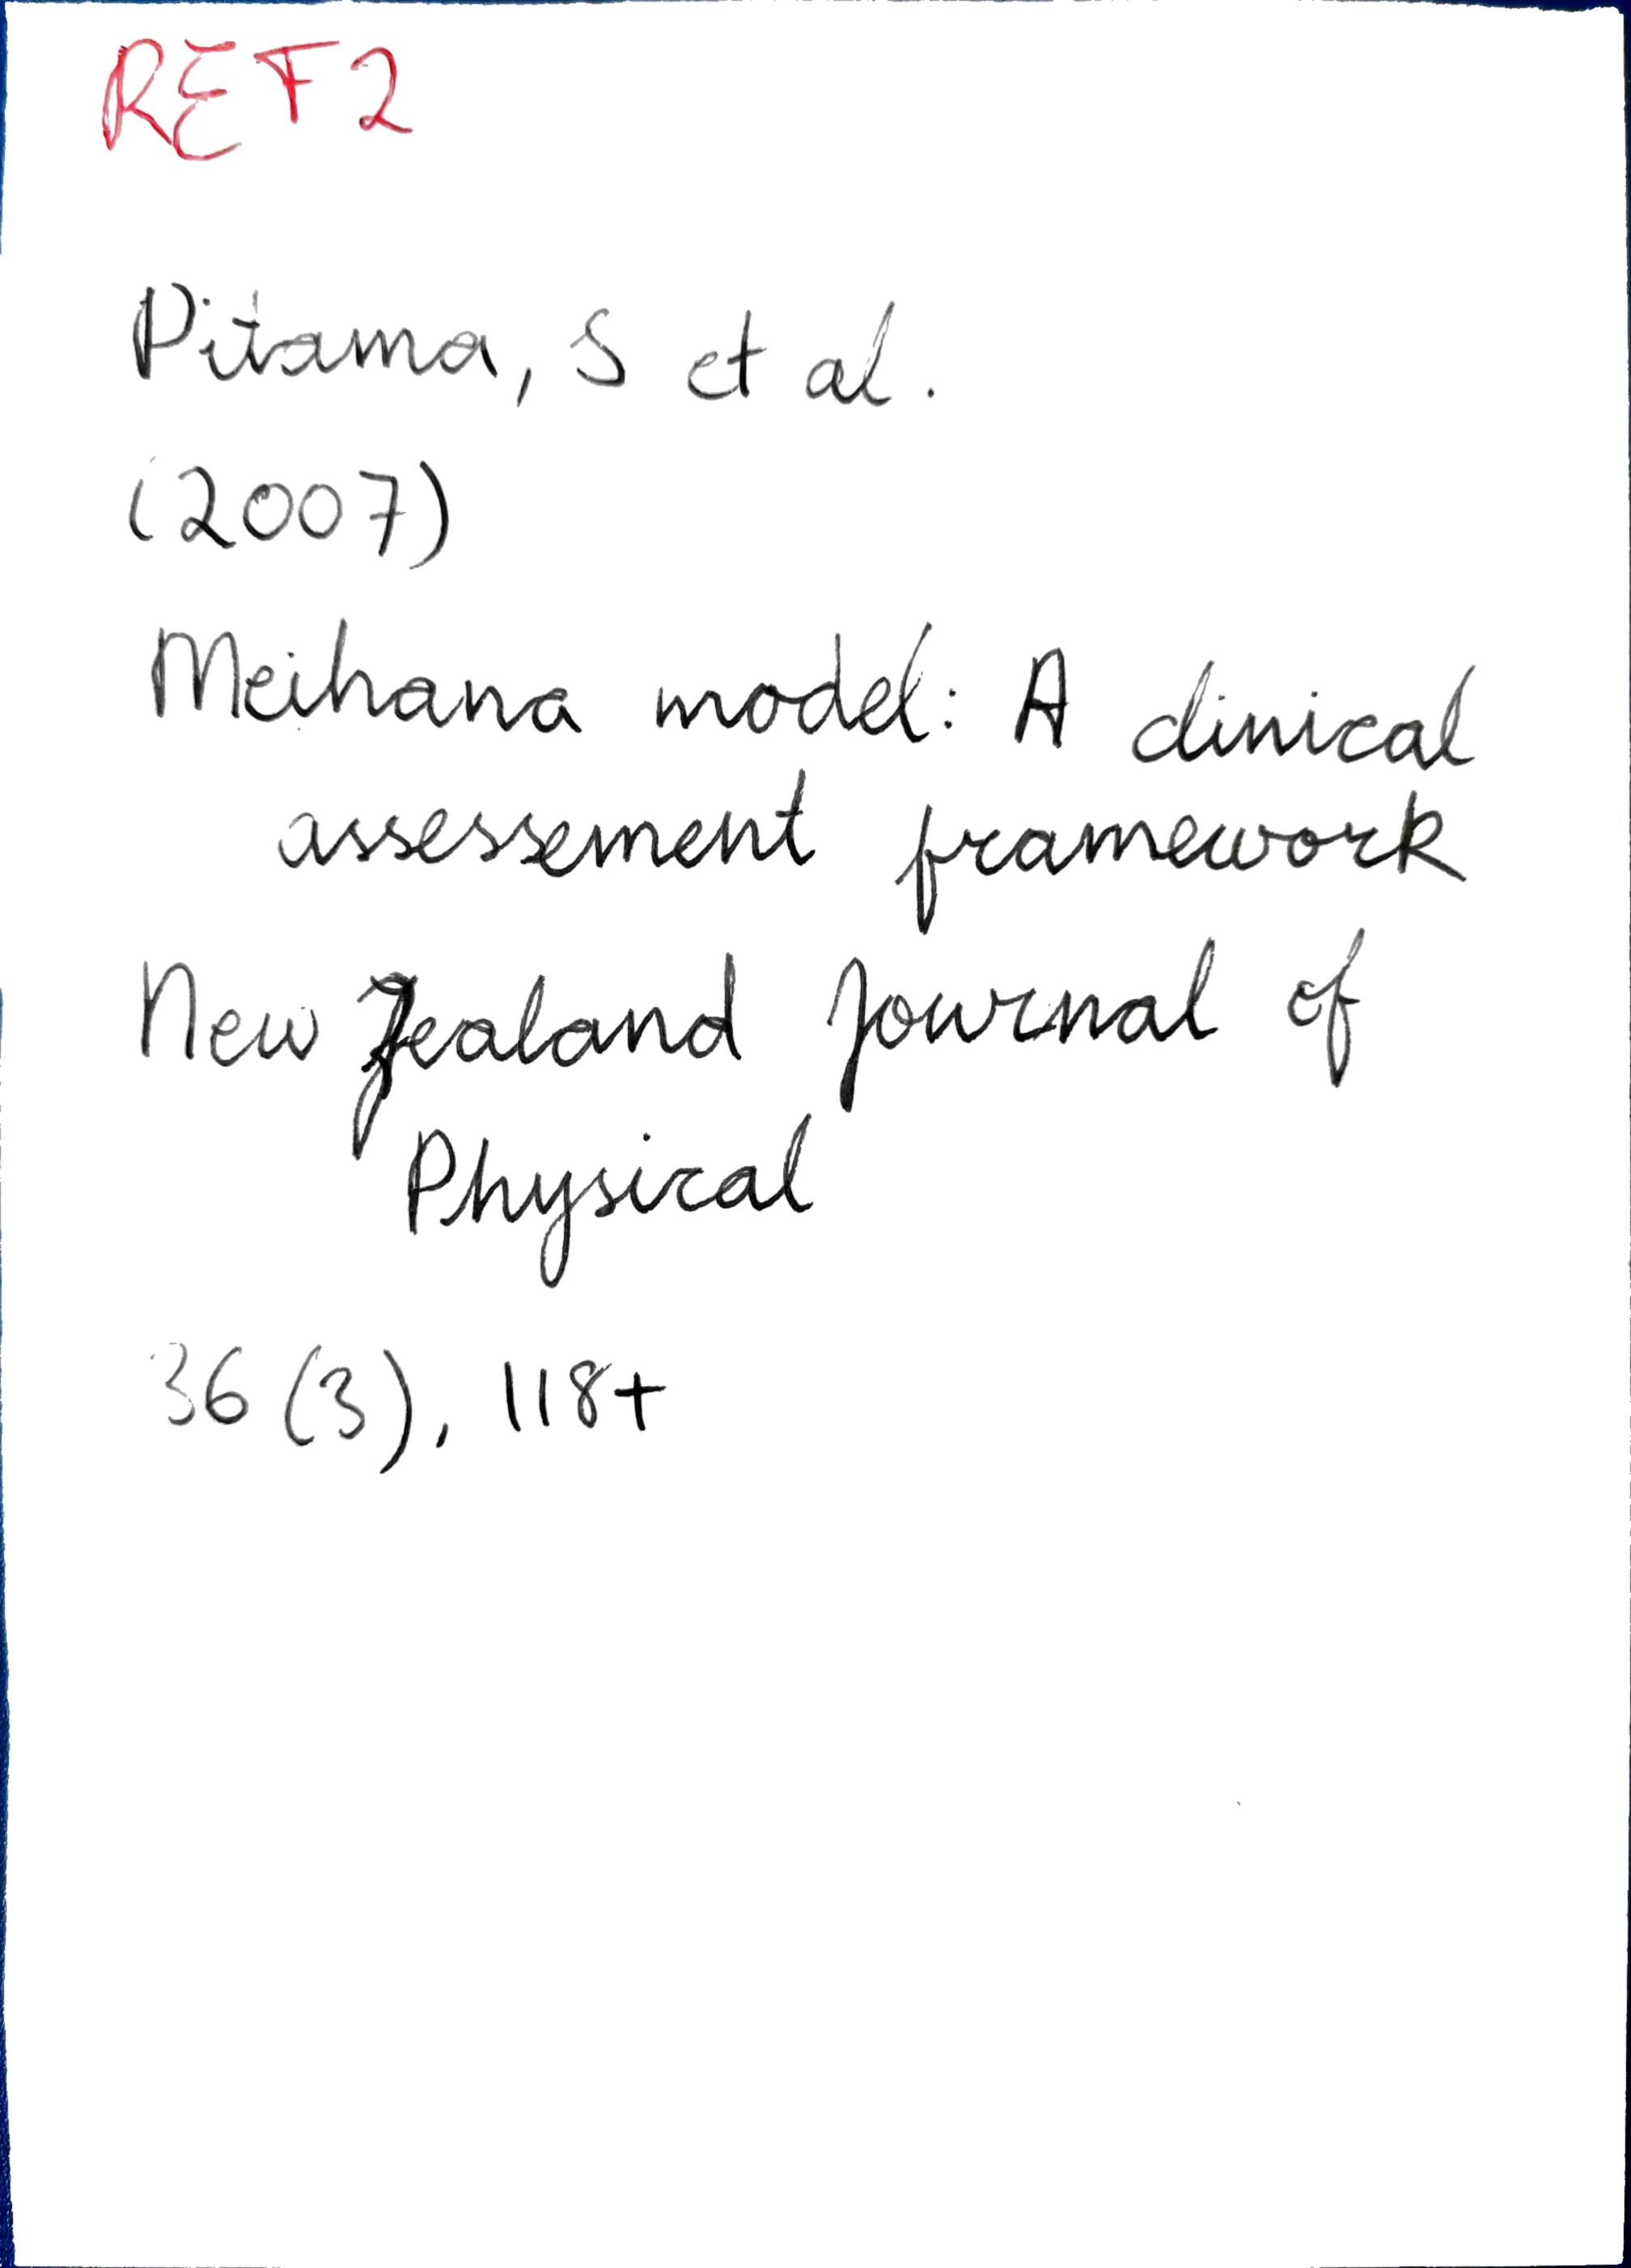 REF2
Pitama, S et al.
(2007)
Meihana model: A clinical
assessement framework
New Zealand Journal of
Physical
36 (3), 118+